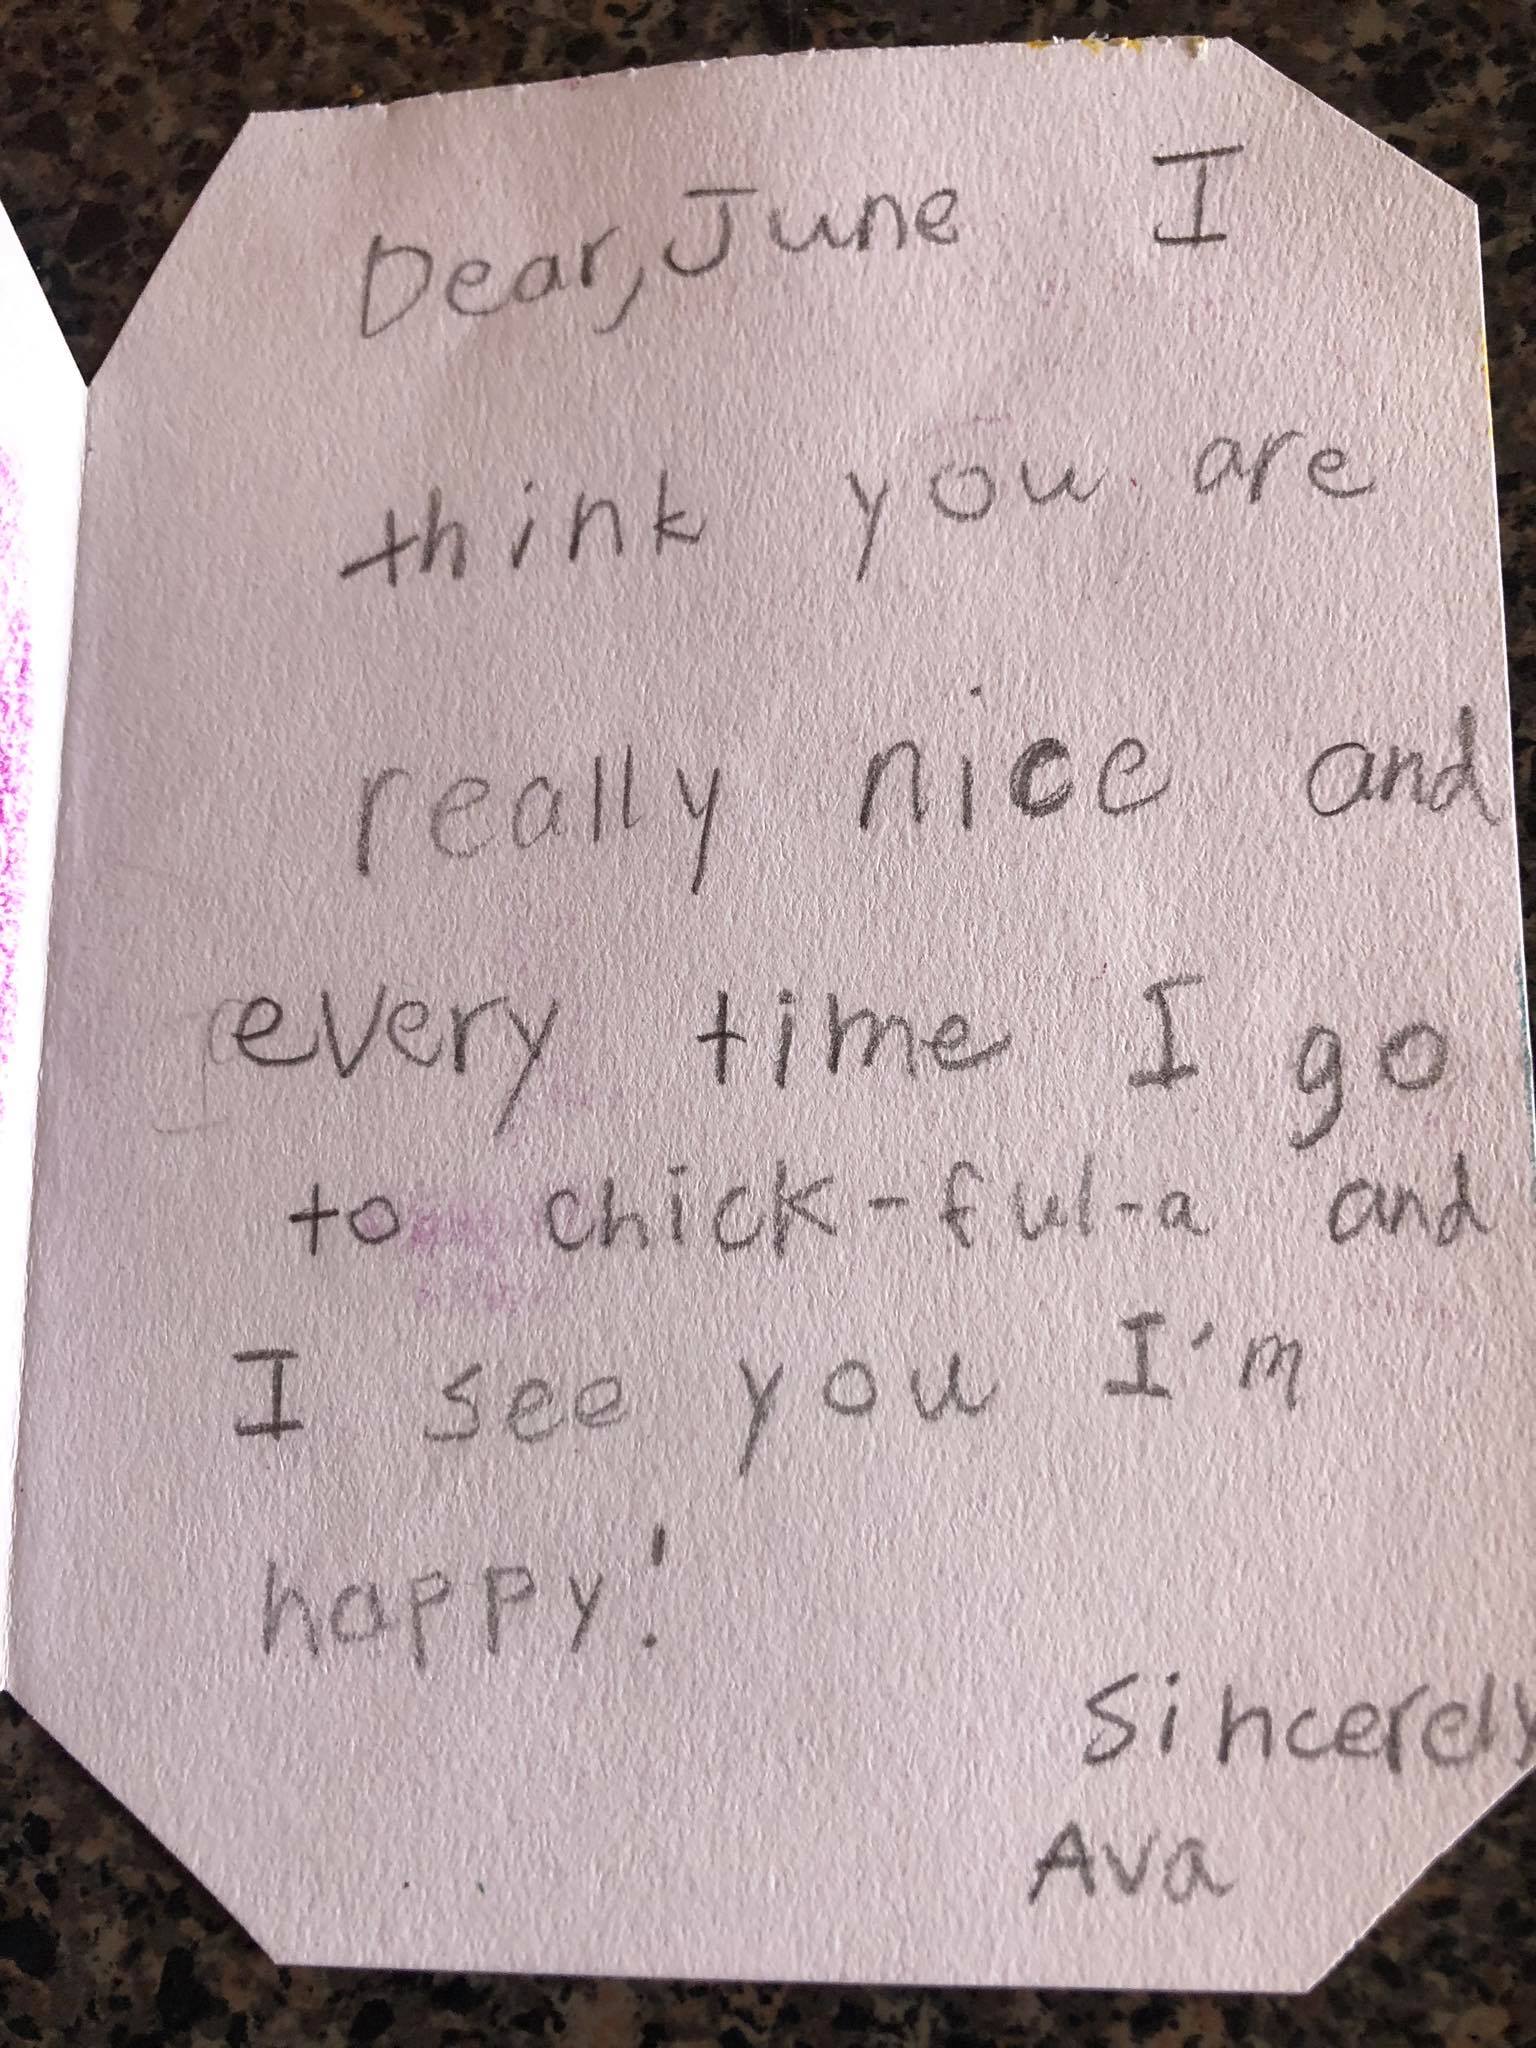 Dear, June I
think you are
really nice and
every time I go
to chick-ful-a and
I see you I'm
happy!
Sincerely
Ava